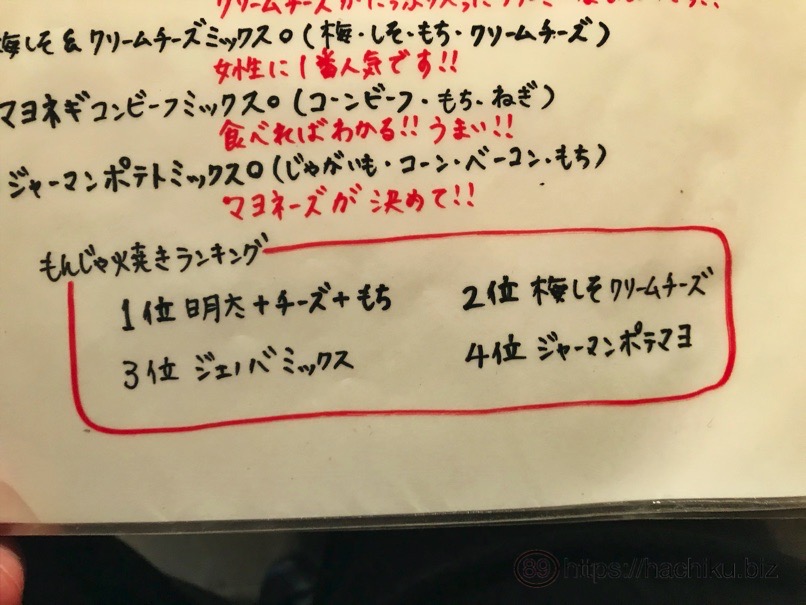 梅しそ&クリームチーズミックス○(梅・しそ・もち・クリームチーズ)
女性に1番人気です!!
マヨネギコンビーフミックス○(コーンビーフ・もち・ねぎ)
食べればわかる!!うまい!!
ジャーマンポテトミックス○(じゃがいも・コーン・ベーコン・もち)
マヨネーズが決めて!!
もんじゃ焼きランキング
1位 明太+チーズ+もち
2位 梅しそクリームチーズ
3位 ジェノバミックス
4位 ジャーマンポテマヨ
89 https://hachiku.biz